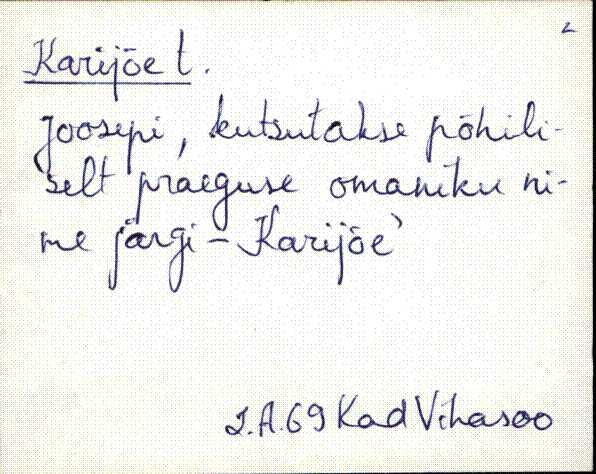 2
Karijõe t.
Joosepi, kutsutakse põhili-
selt praeguse omaniku ni-
me järgi – Karijõe`
J.A.69 Kad Vihasoo